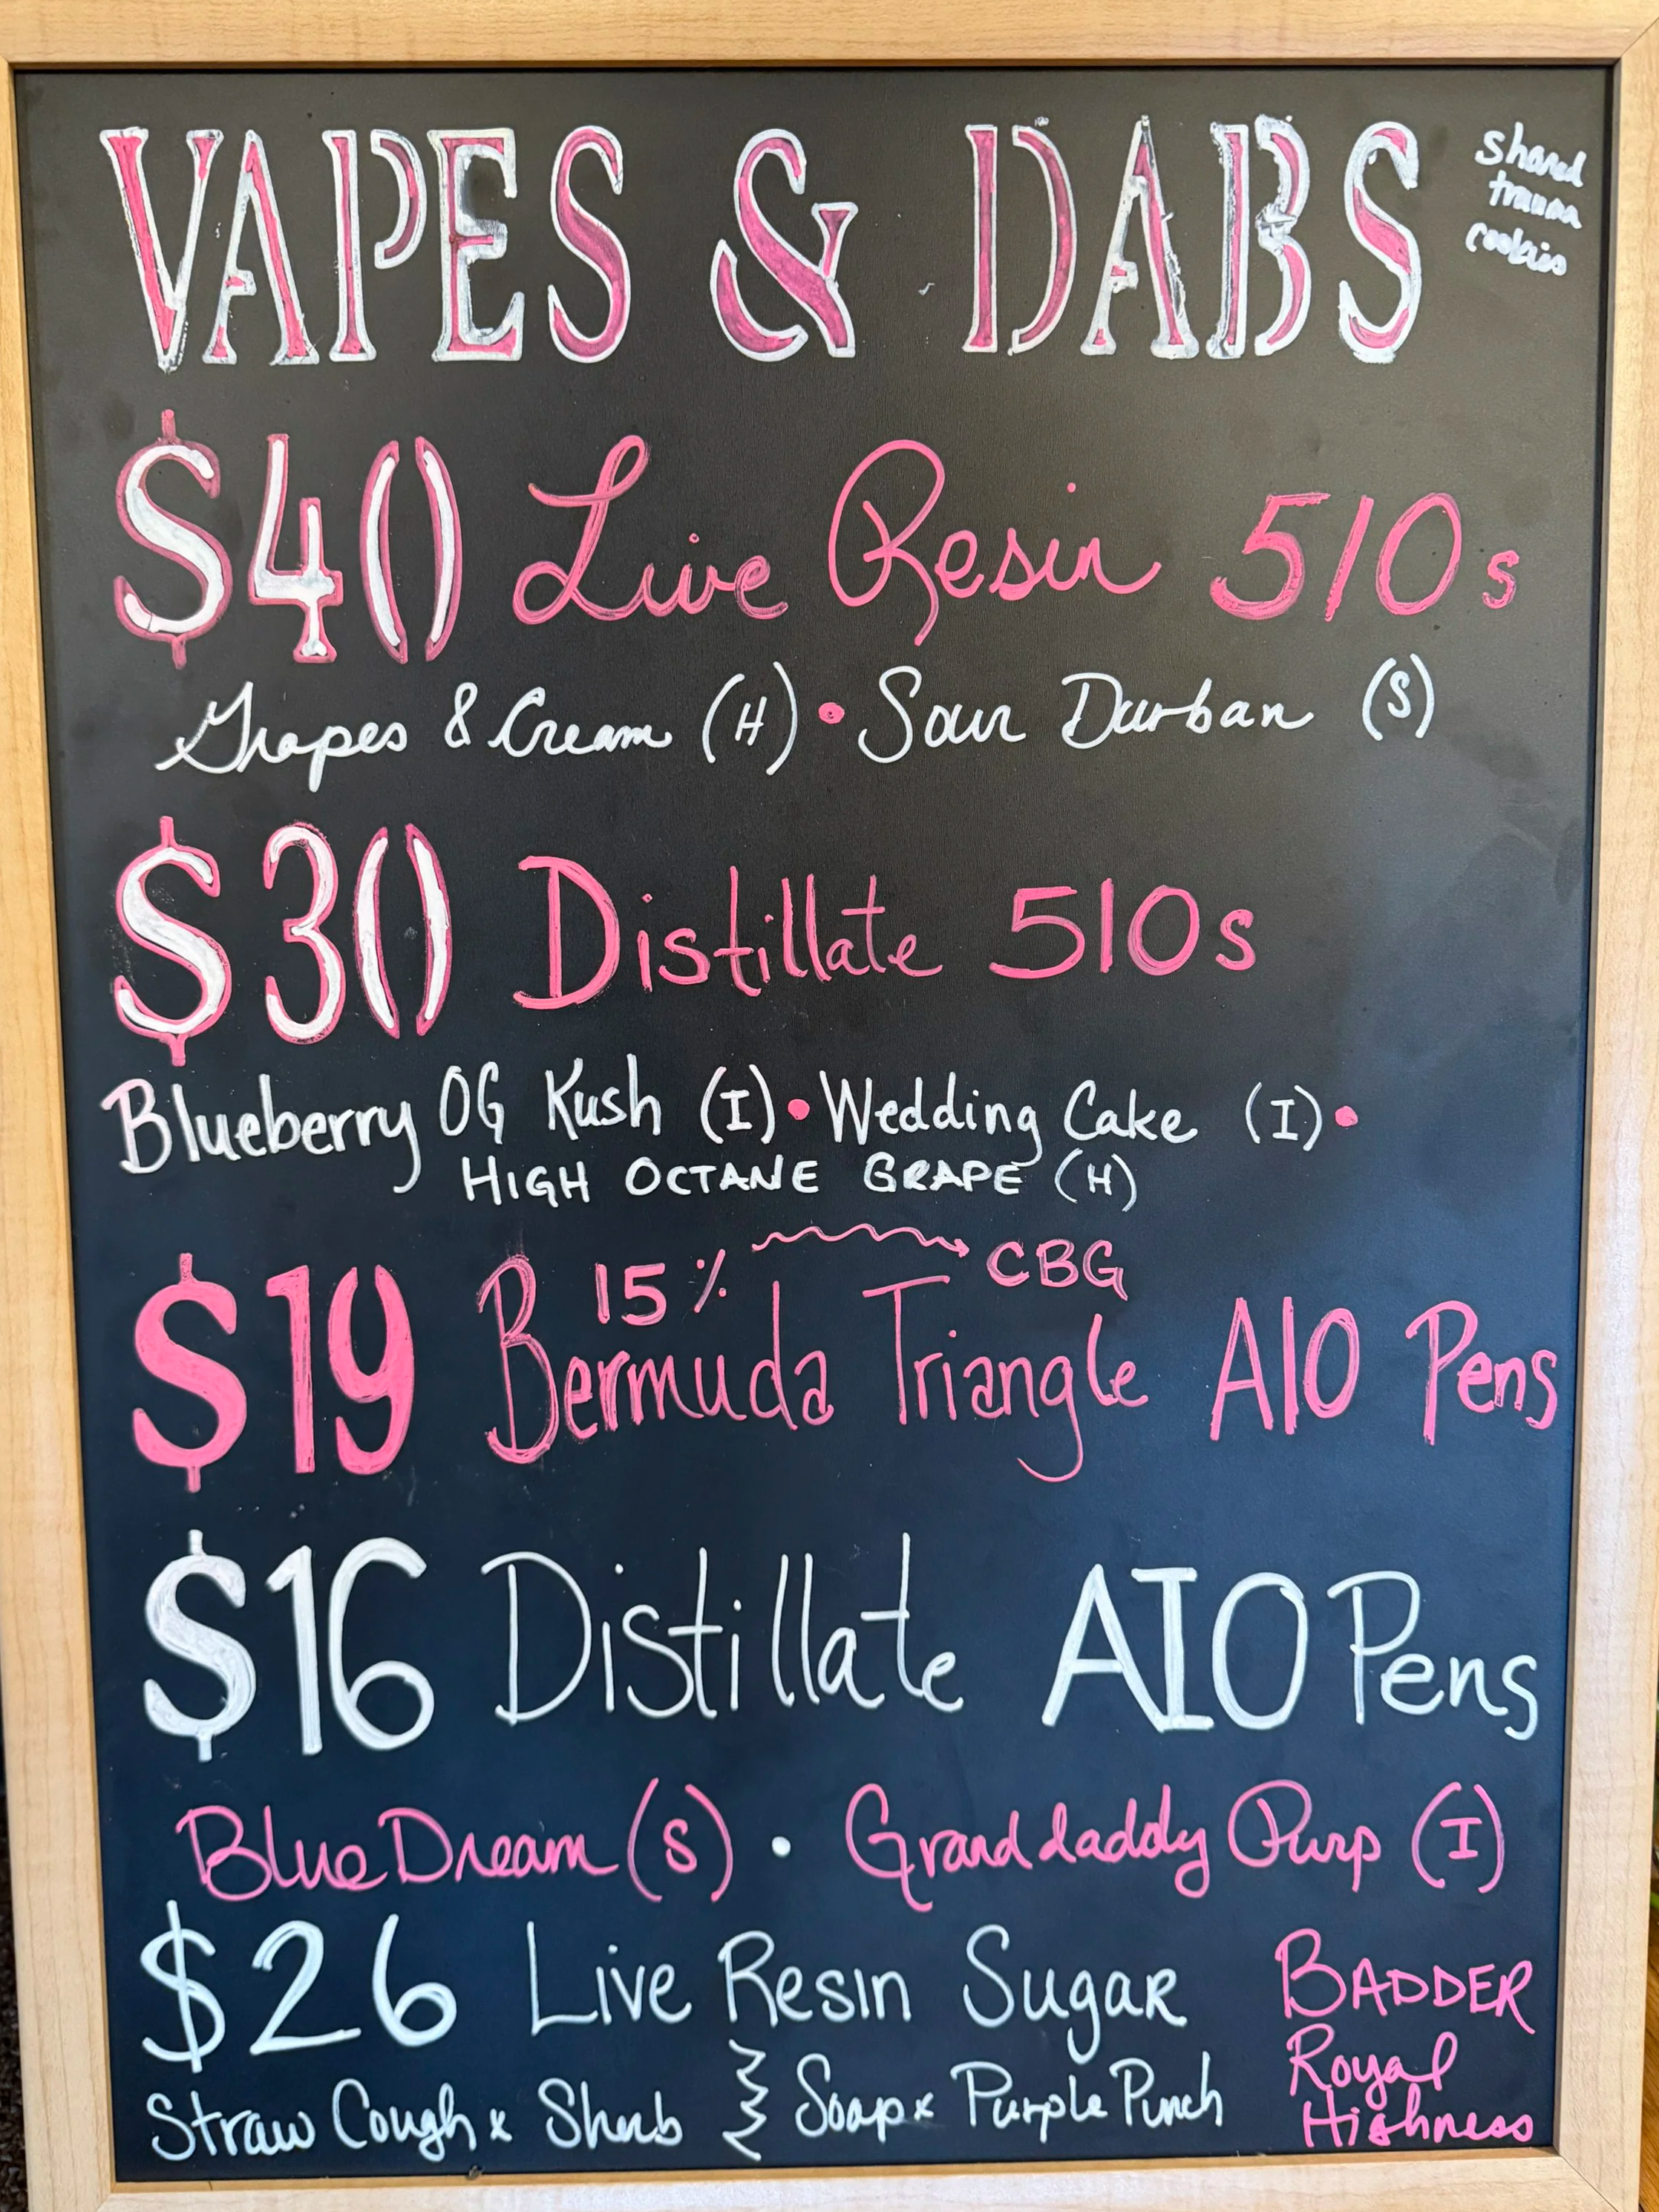 VAPES & DABS
shared
trauma
cookies
$40 Live Resin 510s
Grapes & Cream (H) • Sour Durban (S)
$30 Distillate 510s
Blueberry OG Kush (I) • Wedding Cake (I) •
HIGH OCTANE GRAPE (H)
15% CBG
$19 Bermuda Triangle AIO Pens
$16 Distillate AIO Pens
Blue Dream (S) • Granddaddy Purp (I)
$26 Live Resin Sugar
Straw Cough x Sherb
Soap x Purple Punch
BADDER
Royal
Highness